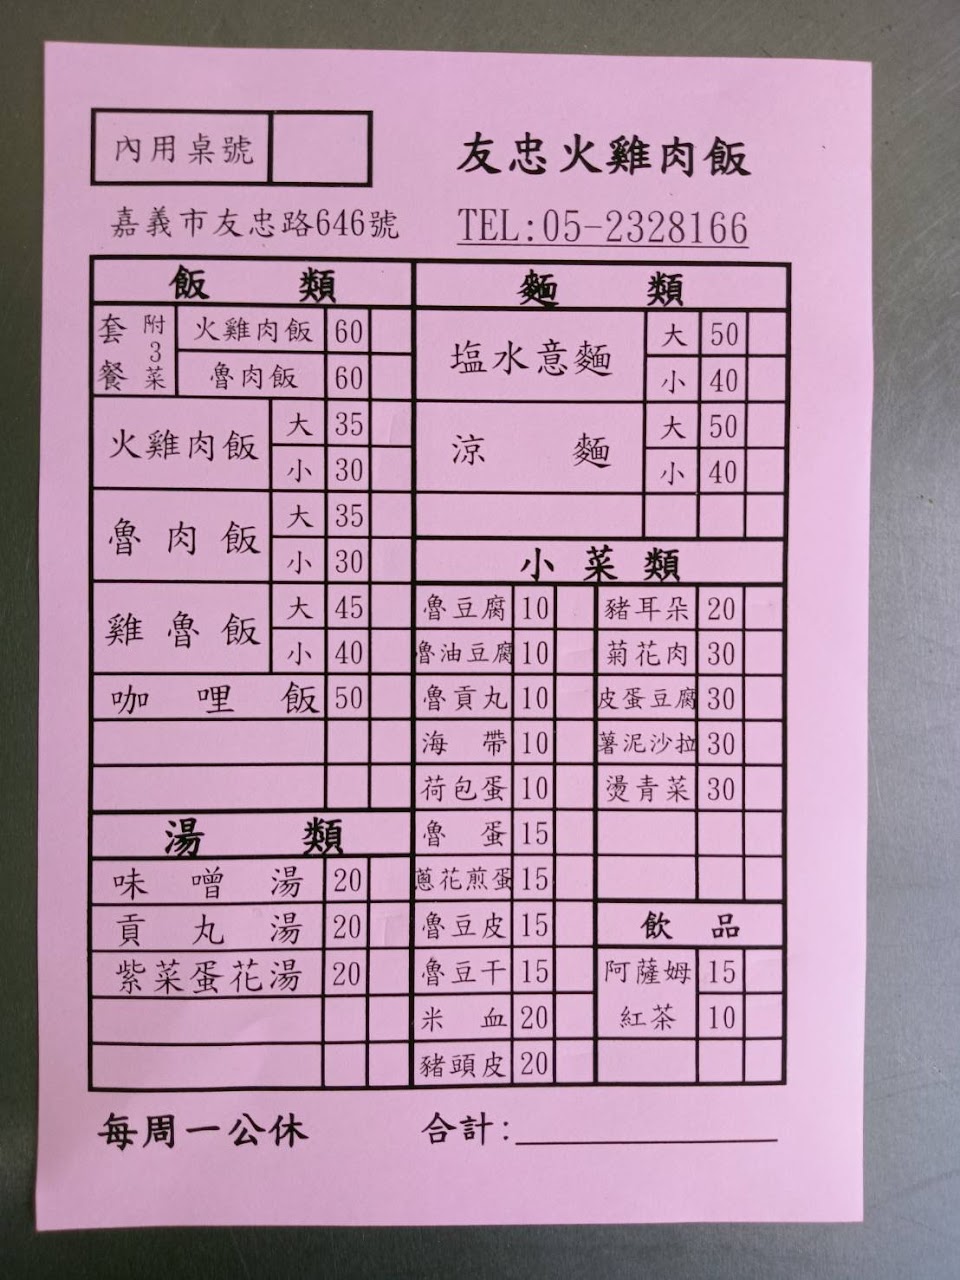 內用桌號
友忠火雞肉飯
嘉義市友忠路646號
TEL:05-2328166
飯 類
套餐 附3菜 火雞肉飯 60
魯肉飯 60
火雞肉飯 大 35
小 30
魯肉飯 大 35
小 30
雞魯飯 大 45
小 40
咖哩飯 50
湯 類
味噌湯 20
貢丸湯 20
紫菜蛋花湯 20
麵 類
塩水意麵 大 50
小 40
涼麵 大 50
小 40
小菜類
魯豆腐 10
魯油豆腐 10
魯貢丸 10
海帶 10
荷包蛋 10
魯蛋 15
蔥花煎蛋 15
魯豆皮 15
魯豆干 15
米血 20
豬頭皮 20
豬耳朵 20
菊花肉 30
皮蛋豆腐 30
薯泥沙拉 30
燙青菜 30
飲品
阿薩姆 15
紅茶 10
每周一公休
合計: